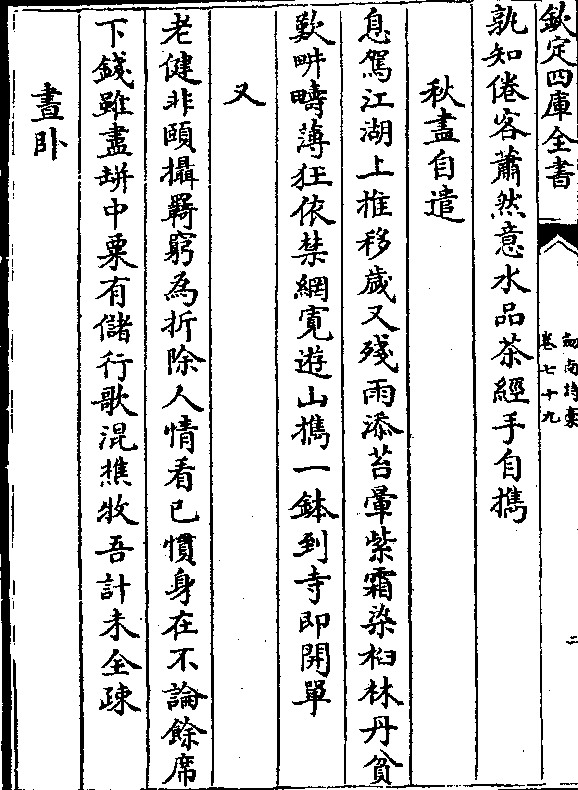 欽定四庫全書
劍南詩稾
卷七十九
二
孰知倦客蕭然意水品茶經手自擕
秋盡自遣
息駕江湖上推移歲又殘雨添苔暈紫霜染桕林丹貧
歎畊疇薄狂依禁網寛遊山擕一鉢到寺即開單
又
老健非頤攝羇窮為折除人情看已慣身在不論餘席
下錢雖盡缾中粟有儲行歌混樵牧吾計未全疎
晝卧